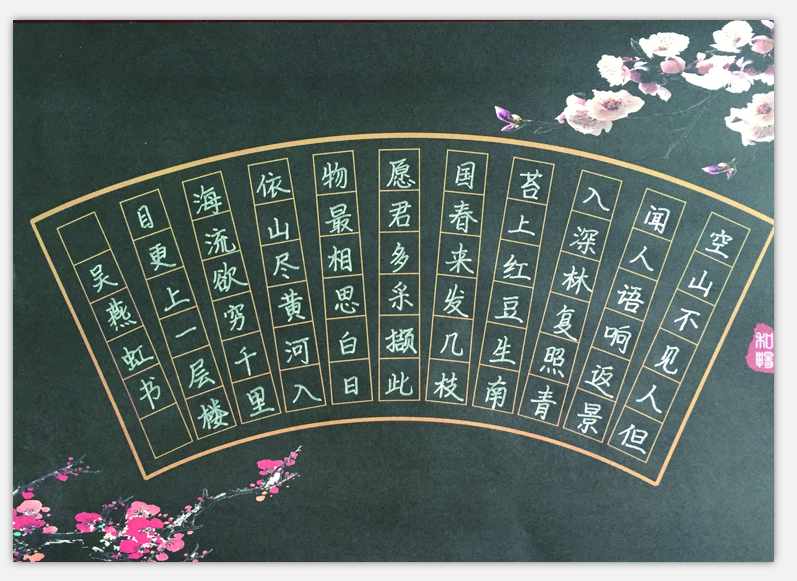 空山不见人但
闻人语响返景
入深林复照青
苔上红豆生南
国春来发几枝
愿君多采撷此
物最相思白日
依山尽黄河入
海流欲穷千里
目更上一层楼
吴燕虹书
和暢